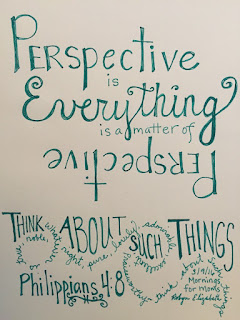 PERSPECTIVE
is
EVERYTHING
is a matter of
PERSPECTIVE
THINK ABOUT SUCH THINGS
noble, whatever right, pure, lovely, admirable
excellent
or
praiseworthy
think about such things
Philippians 4:8
3/9/16
Mornings
for Moms
Robyn Elizabeth